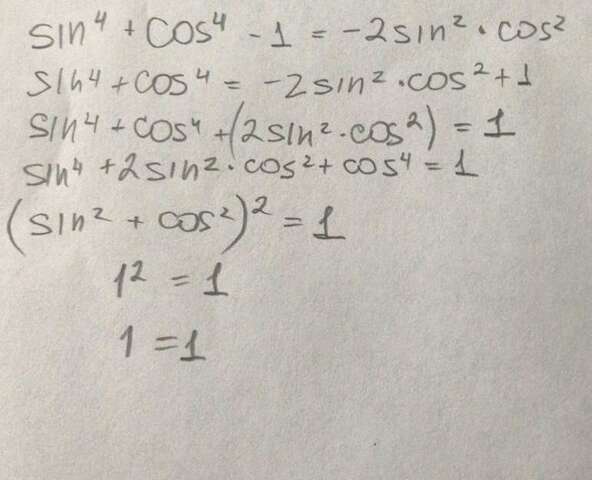 sin⁴ + cos⁴ - 1 = -2sin² · cos²
sin4 + cos4 = -2sin² · cos² + 1
sin4 + cos4 + (2sin² · cos²) = 1
sin⁴ + 2sin² · cos² + cos⁴ = 1
(sin² + cos²)² = 1
1² = 1
1 = 1